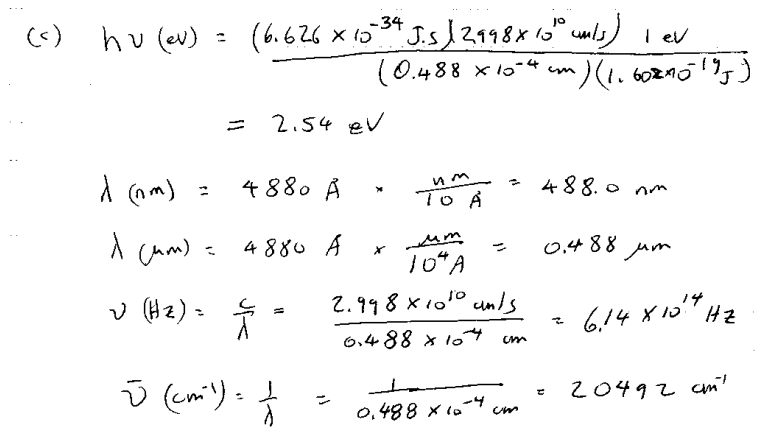 (c) hν (eV) = (6.626 × 10⁻³⁴ J.s)(2.998 × 10¹⁰ cm/s) 1 eV
(0.488 × 10⁻⁴ cm)(1.602×10⁻¹⁹J)
= 2.54 eV
λ (nm) = 4880 Å × nm / 10 Å = 488.0 nm
λ (μm) = 4880 Å × μm / 10⁴Å = 0.488 μm
ν (Hz) = c / λ = 2.998 × 10¹⁰ cm/s / 0.488 × 10⁻⁴ cm = 6.14 × 10¹⁴ Hz
ν̄ (cm⁻¹) = 1 / λ = 1 / 0.488 × 10⁻⁴ cm = 20492 cm⁻¹